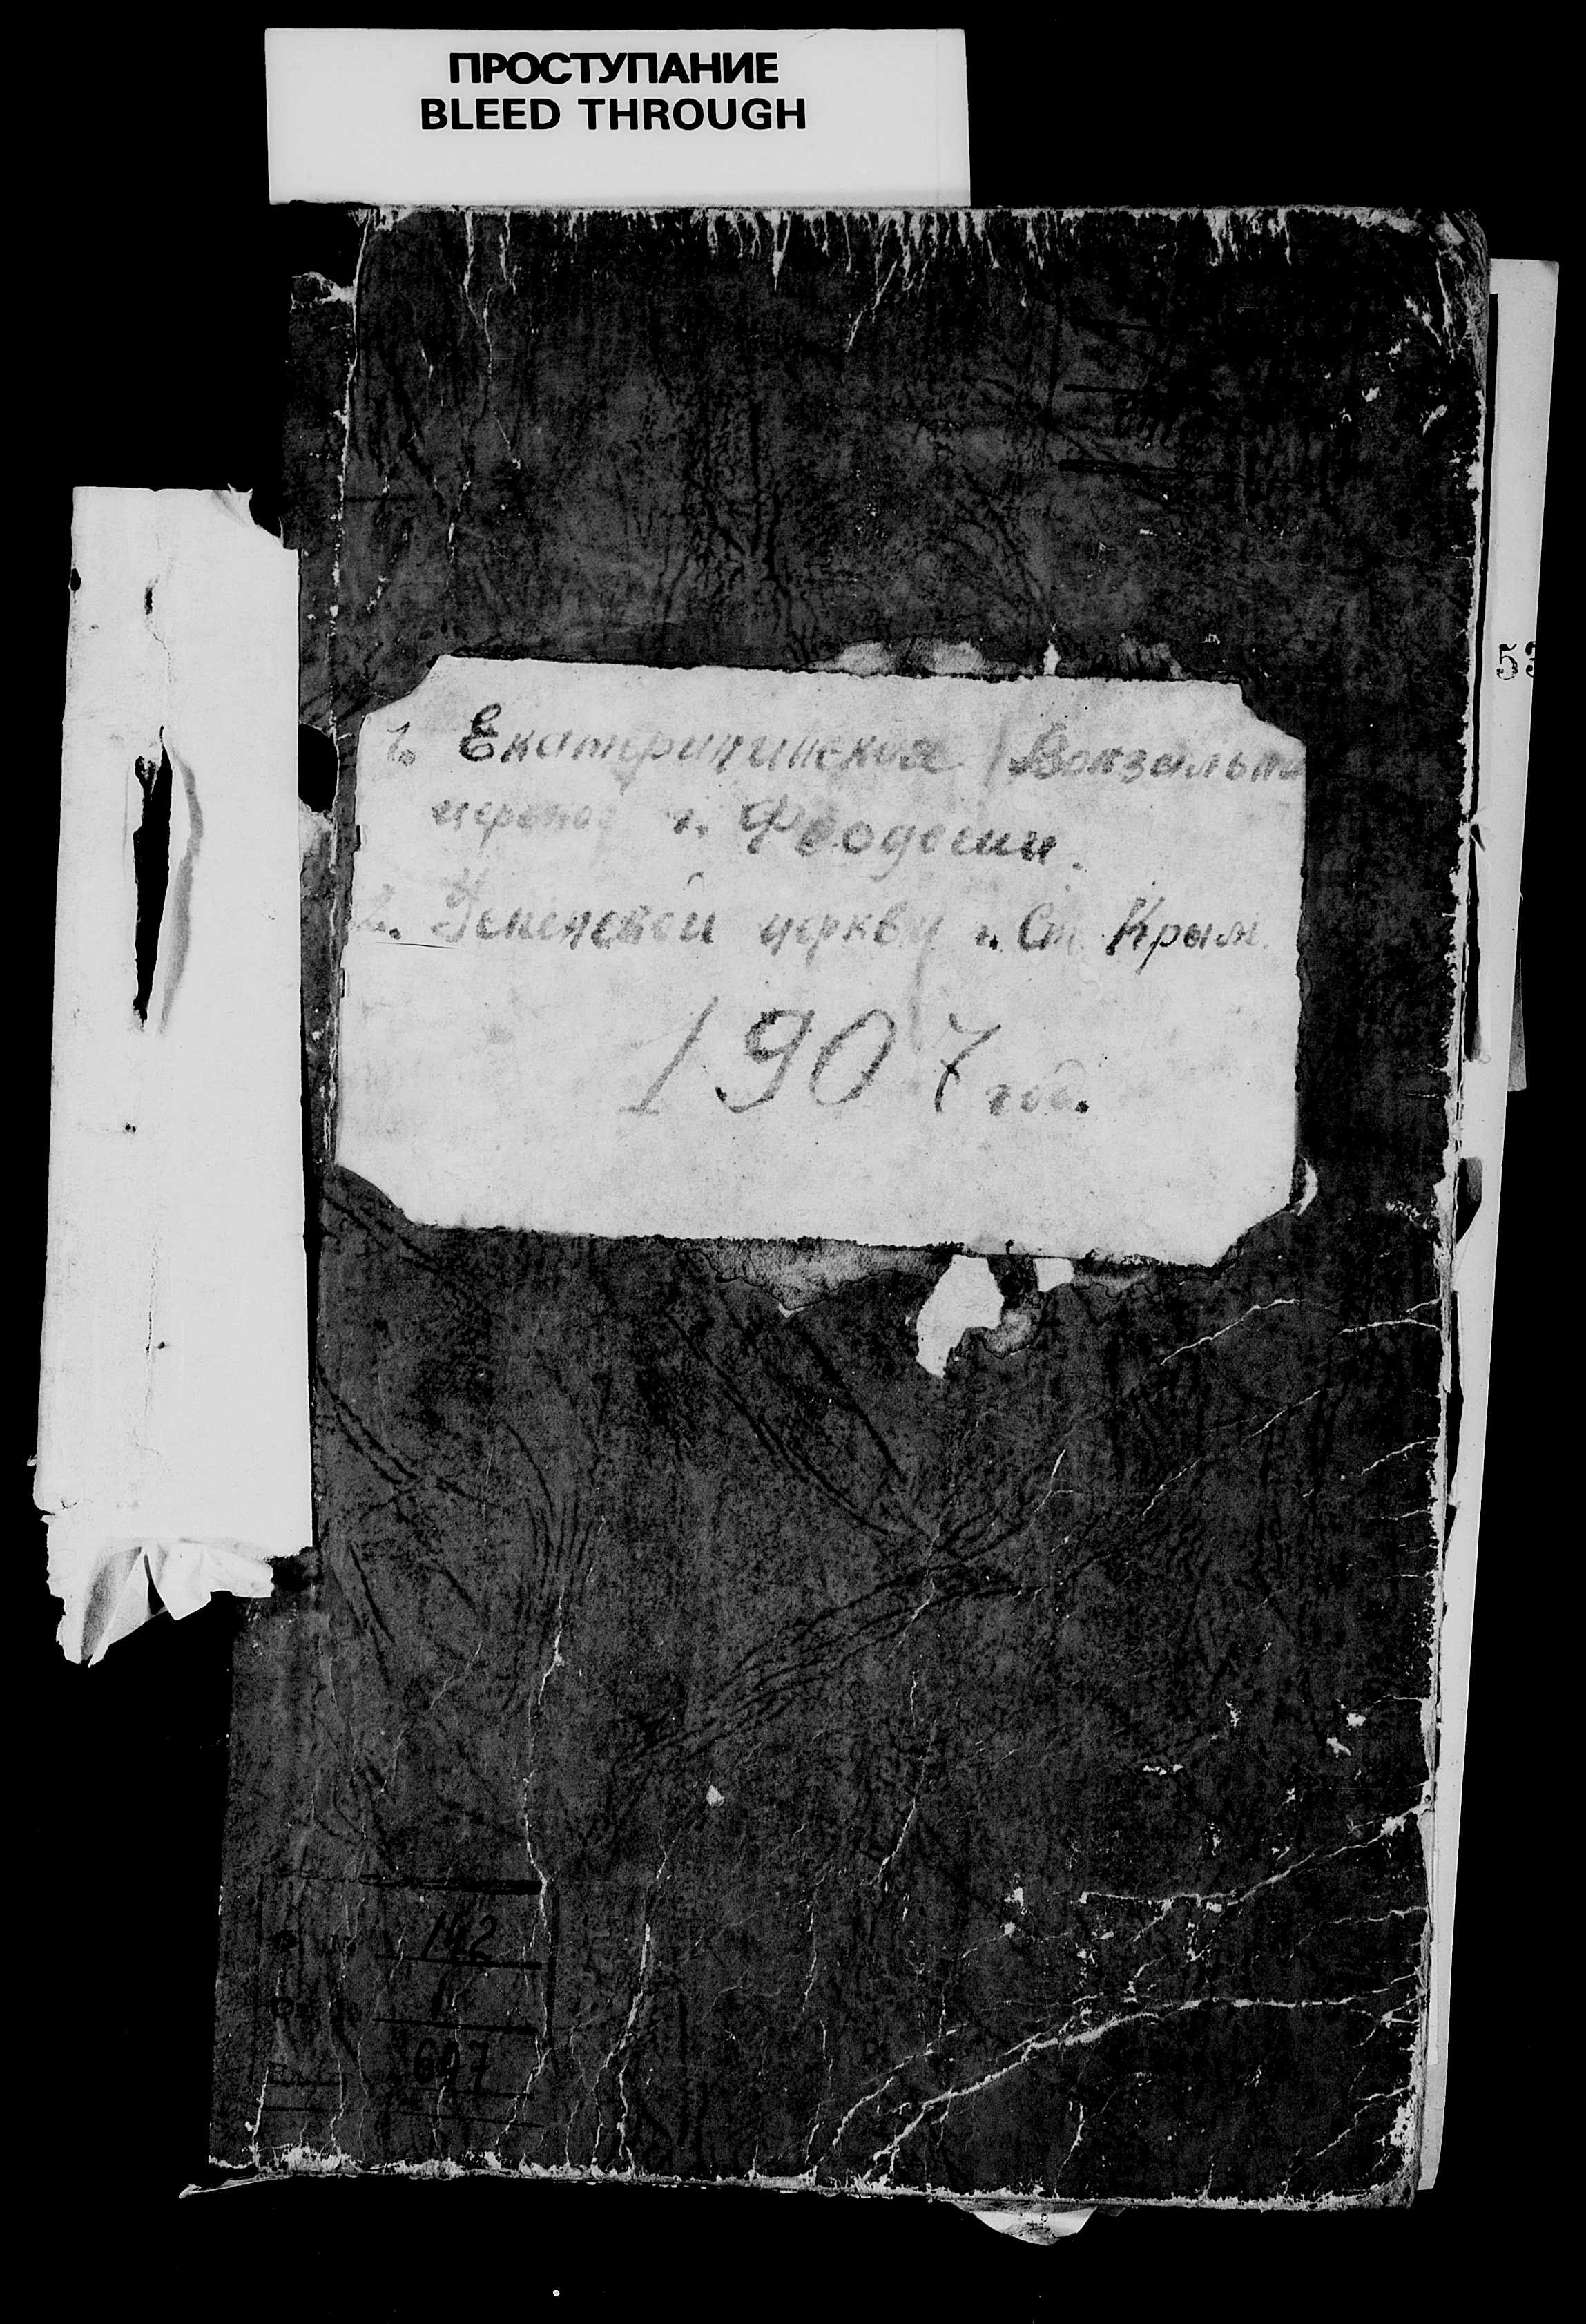 ПРОСТУПАНИЕ
BLEED THROUGH
1. Екатерининская (Вокзальна
г. Феодосии.
2. Успенской церкви г. Ст. Крым.
1907 год.
142
1
697